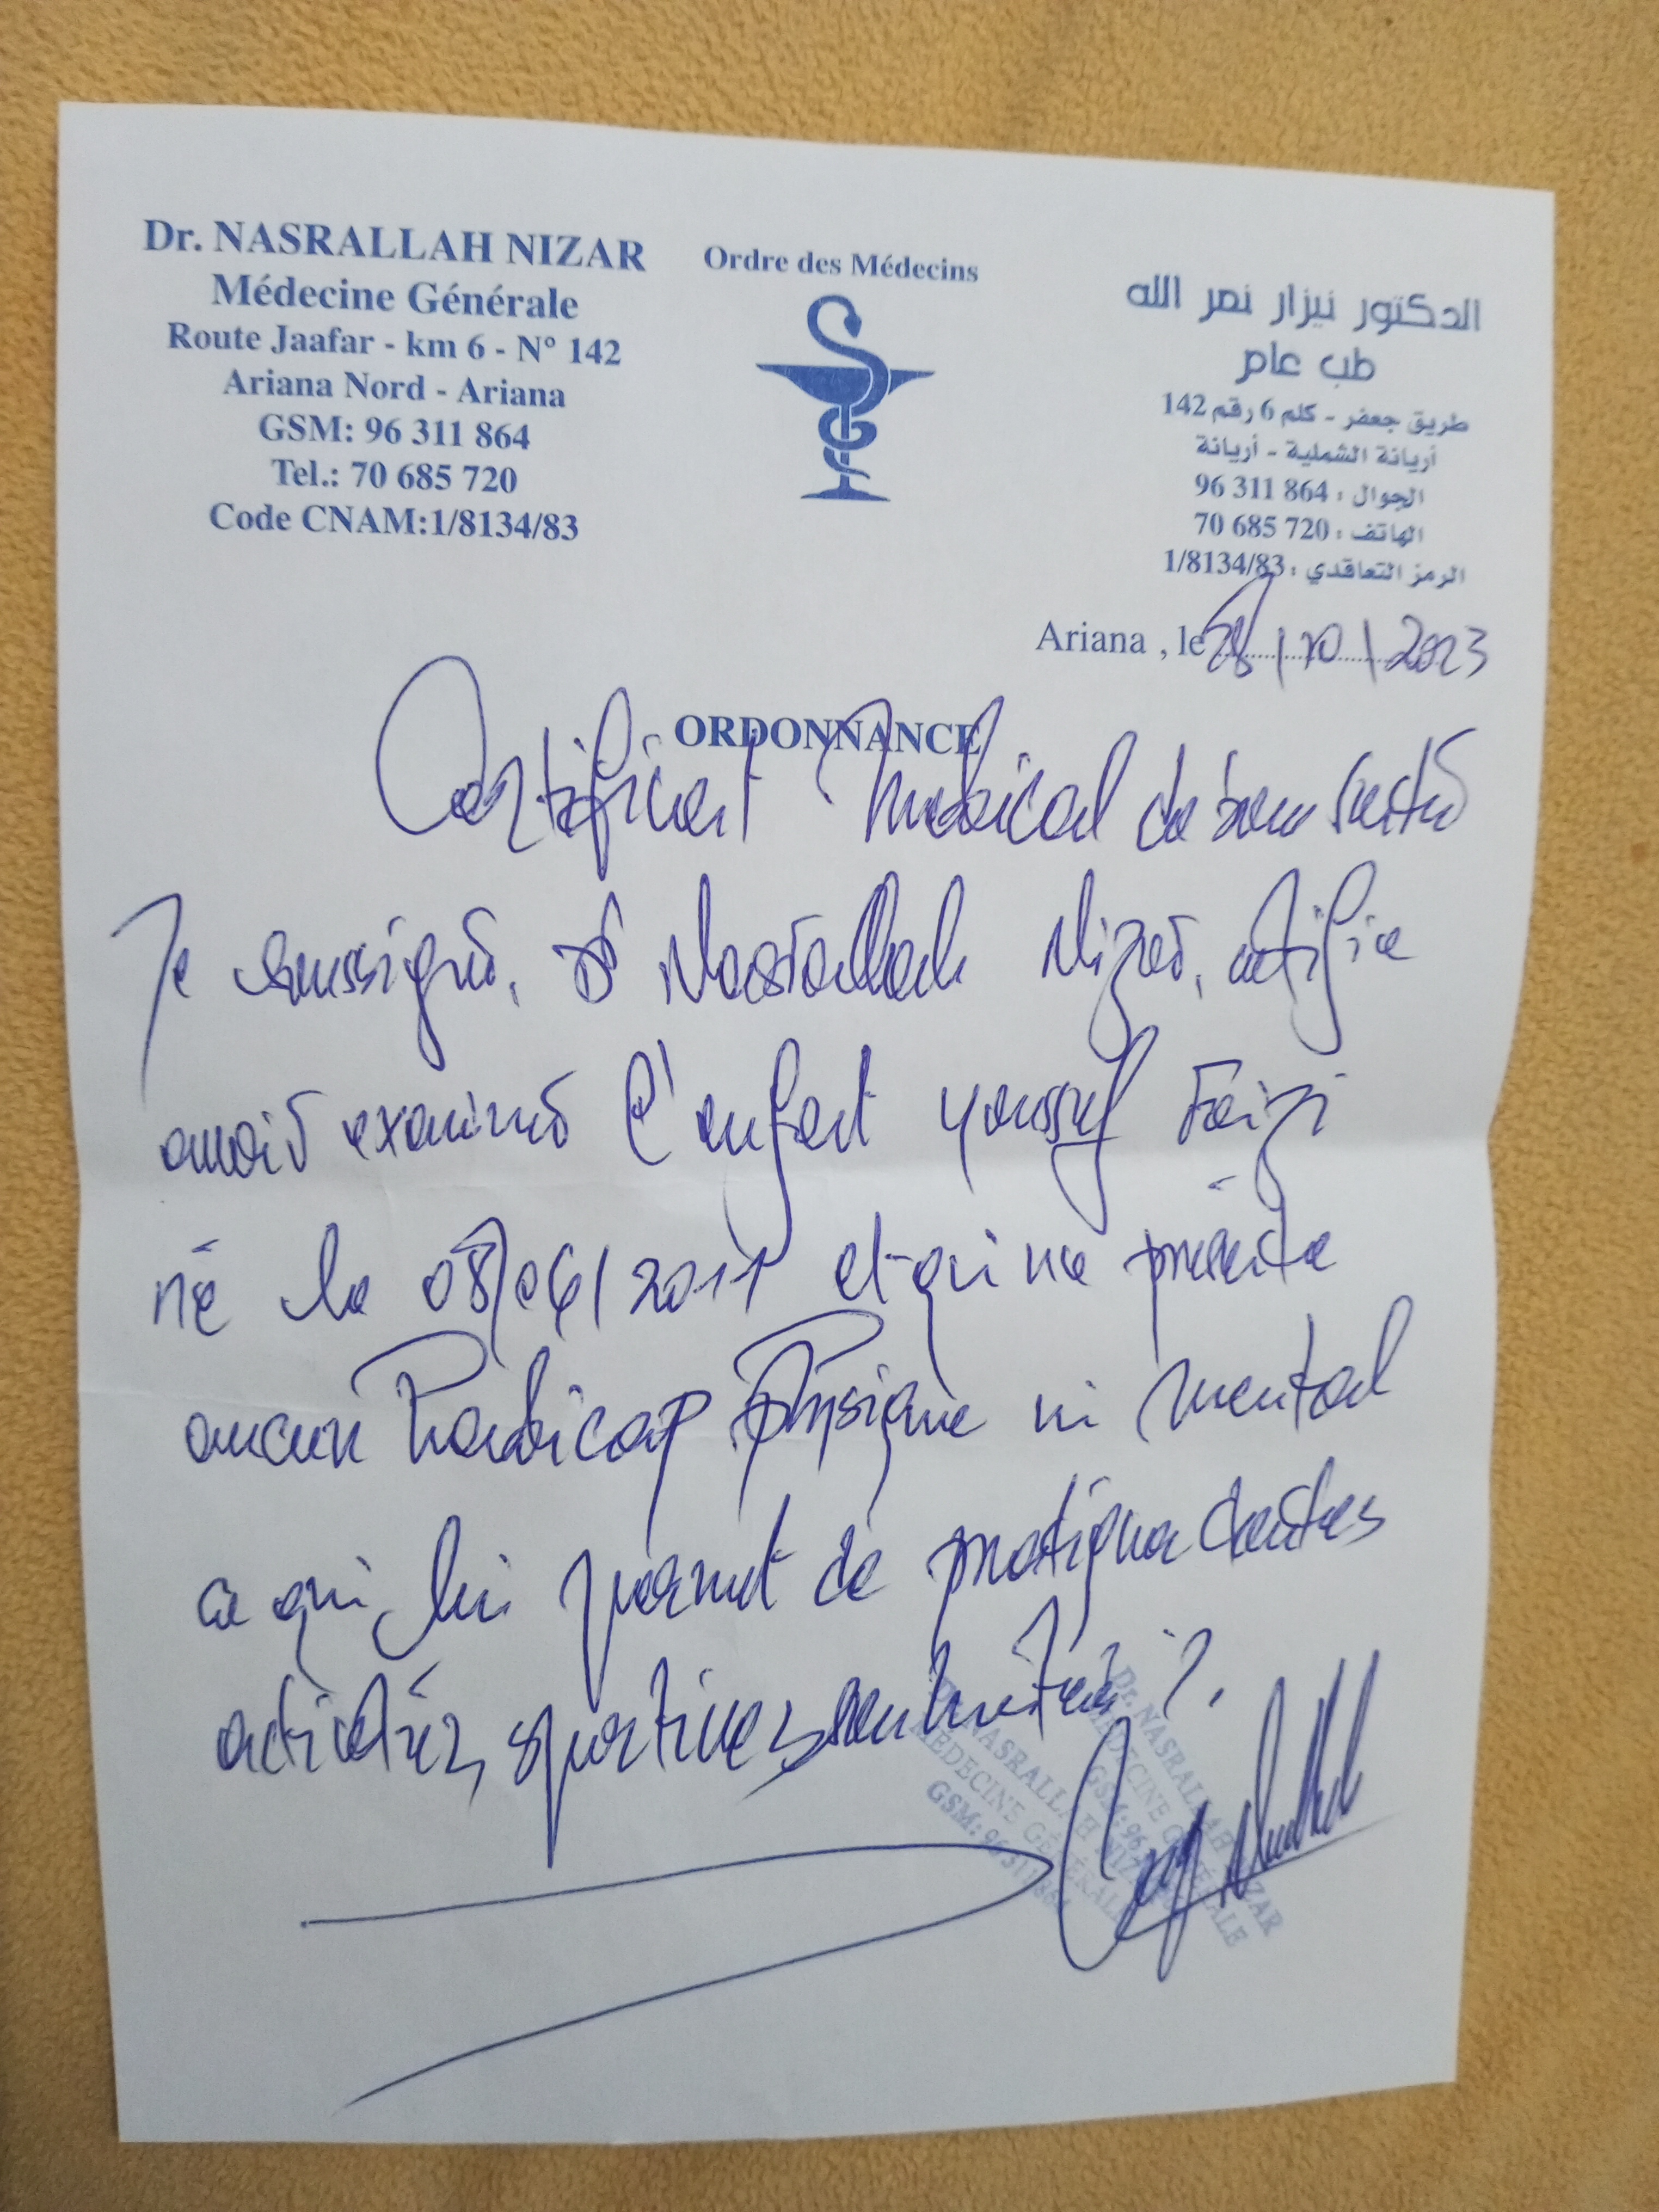 Dr. NASRALLAH NIZAR
Médecine Générale
Route Jaafar - km 6 - N° 142
Ariana Nord - Ariana
GSM: 96 311 864
Tel.: 70 685 720
Code CNAM:1/8134/83
Ordre des Médecins
الدكتور نيزار نصر الله
طب عام
طريق جعفر - كلم 6 رقم 142
أريانة الشملية - أريانة
الجوال : 96 311 864
الهاتف : 70 685 720
الرمز التعاقدي : 1/8134/83
Ariana , le /10/2023
ORDONNANCE
Certificat Médical de bonne santé
Je soussigné, Dr Nasrallah Nizar, certifie
avoir examiné l'enfant Youssef Faizi
né le 08/06/2011 et qui ne présente
aucun handicap physique ni mental
ce qui lui permet de pratiquer toutes
activités sportives
Dr. NASRALLAH NIZAR
MÉDECINE GÉNÉRALE
GSM: 96 311 864
Dr. NASRALLAH NIZAR
MÉDECINE GÉNÉRALE
GSM: 96